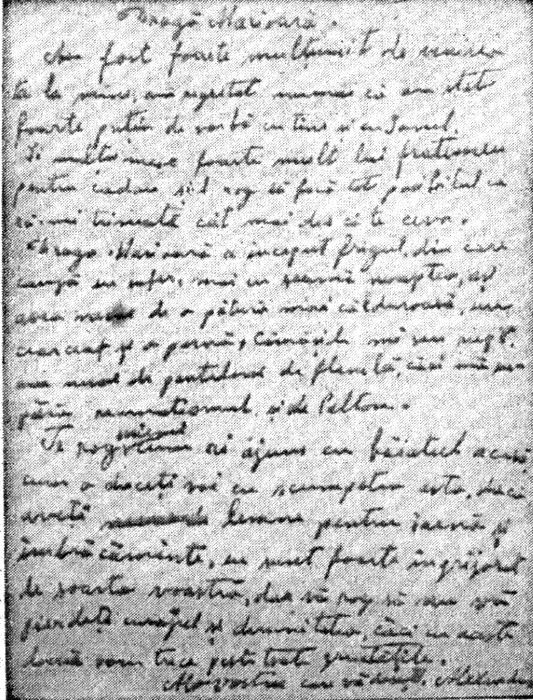 Dragă Marioară.
Am fost foarte mulțumit de venirea
ta la mine, am regretat numai că am stat
foarte puțin de vorbă cu tine și cu Ionel.
Îi mulțumesc foarte mult lui fratemeu
pentru cadou și-l rog să facă tot posibilul ca
să-mi trimeată cât mai des câte ceva.
Dragă Marioară a început frigul, din care
cauză eu sufer, mai cu seamă noaptea, aș
avea nevoe de o pătură mai călduroasă, un
cearceaf și o pernă, Cămășile mi s-au rupt.
am nevoe de pantaloni de flanelă, căci mă
reumatismul și de Palton.
Te rog să-mi ajuns cu băiatul acasă
cum o duceți voi cu scumpetea asta, dacă
aveți lemne pentru iarnă și
îmbrăcăminte, eu sunt foarte îngrijorat
de soarta voastră, dar vă rog să nu vă
pierdeți curajul și demnitatea, căci cu aceste
două vom trece peste toate greutățile.
Al vostru care vă dorește, Alexandru